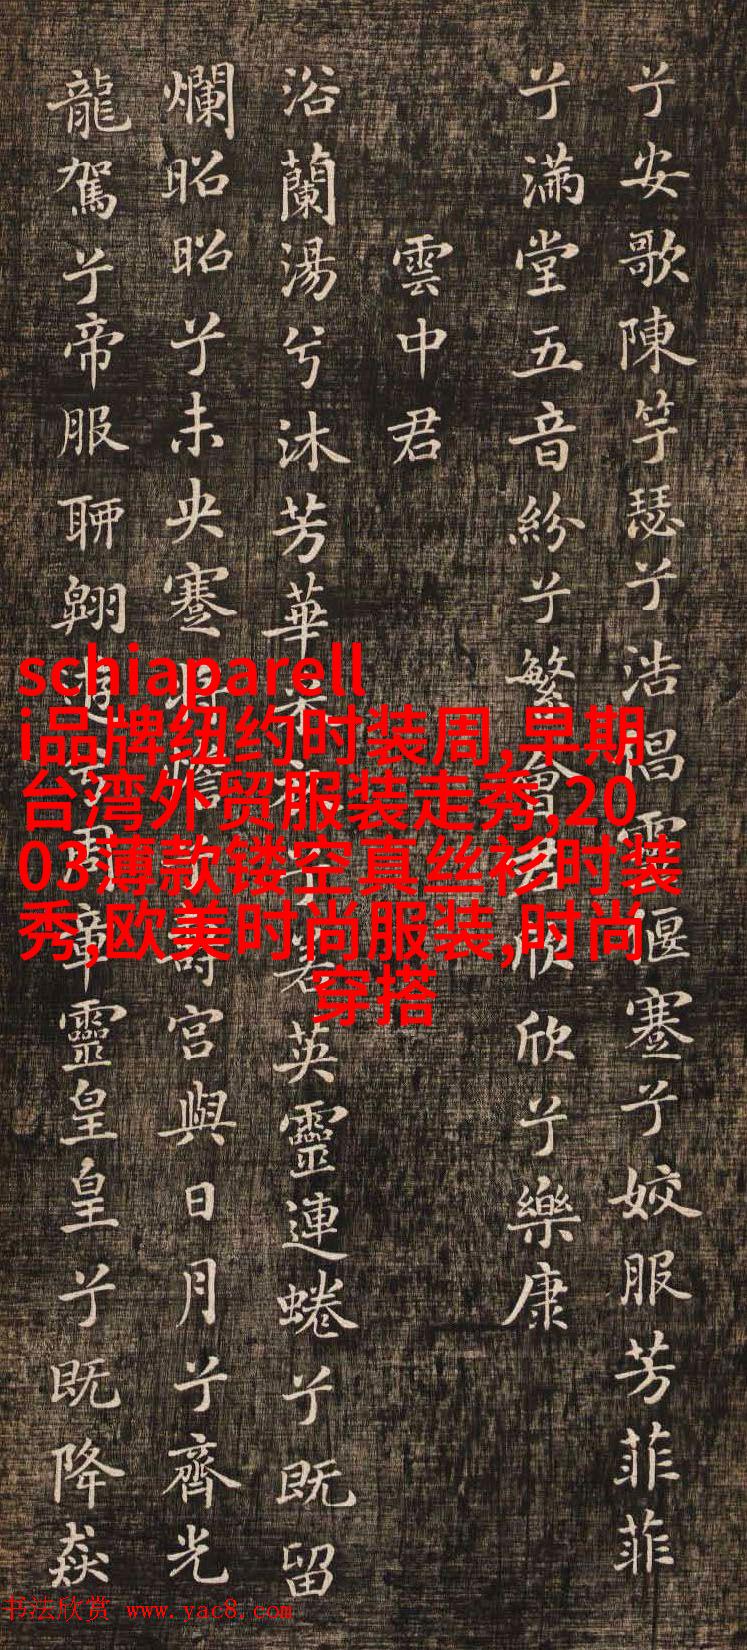 兮安歌陳竽瑟兮浩倡靈偃蹇兮姣服芳菲菲
兮滿堂五音紛兮繁會君欣欣兮樂康
雲中君
浴蘭湯兮沐芳華采衣兮若英靈連蜷兮既留
爛昭昭兮未央蹇將憺兮壽宮與日月兮齊光
龍駕兮帝服聊翱遊兮周章靈皇皇兮既降猋
schiaparell
i品牌纽约时装周,早期
台湾外贸服装走秀,20
03薄款镂空真丝衫时装
秀,欧美时尚服装,时尚
穿搭
书法欣赏 www.yac8.com